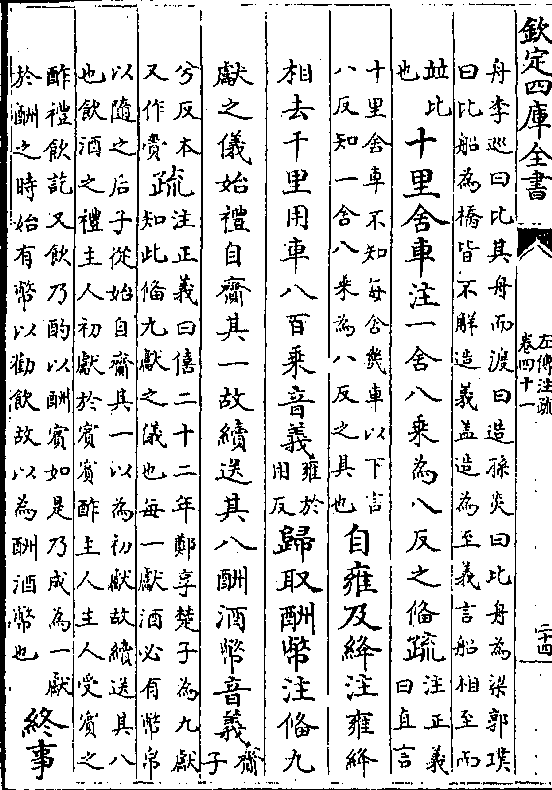 欽定四庫全書
左傳注疏
卷四十一
二十四
舟李巡曰比其舟而渡曰造孫炎曰比舟為梁郭璞
曰比船為橋皆不解造義盖造為至義言船相至而
並比
也
十里舍車注一舍八乗為八反之備疏
注正義
曰直言
十里舍車不知每舍幾車以下言
八反知一舍八乗為八反之具也
自雍及絳注雍絳
相去千里用車八百乗音義
雍於
用反
歸取酬幣注備九
獻之儀始禮自齎其一故續送其八酬酒幣音義
齎
子
兮反本
又作賫
疏
注正義曰僖二十二年鄭享楚子為九獻
知此備九獻之儀也每一獻酒必有幣帛
以隨之后子從始自齎其一以為初獻故續送其八
也飲酒之禮主人初獻於賓賓酢主人主人受賓之
酢禮飲訖又飲乃酌以酬賓如是乃成為一獻
於酬之時始有幣以勸飲故以為酬酒幣也
終事